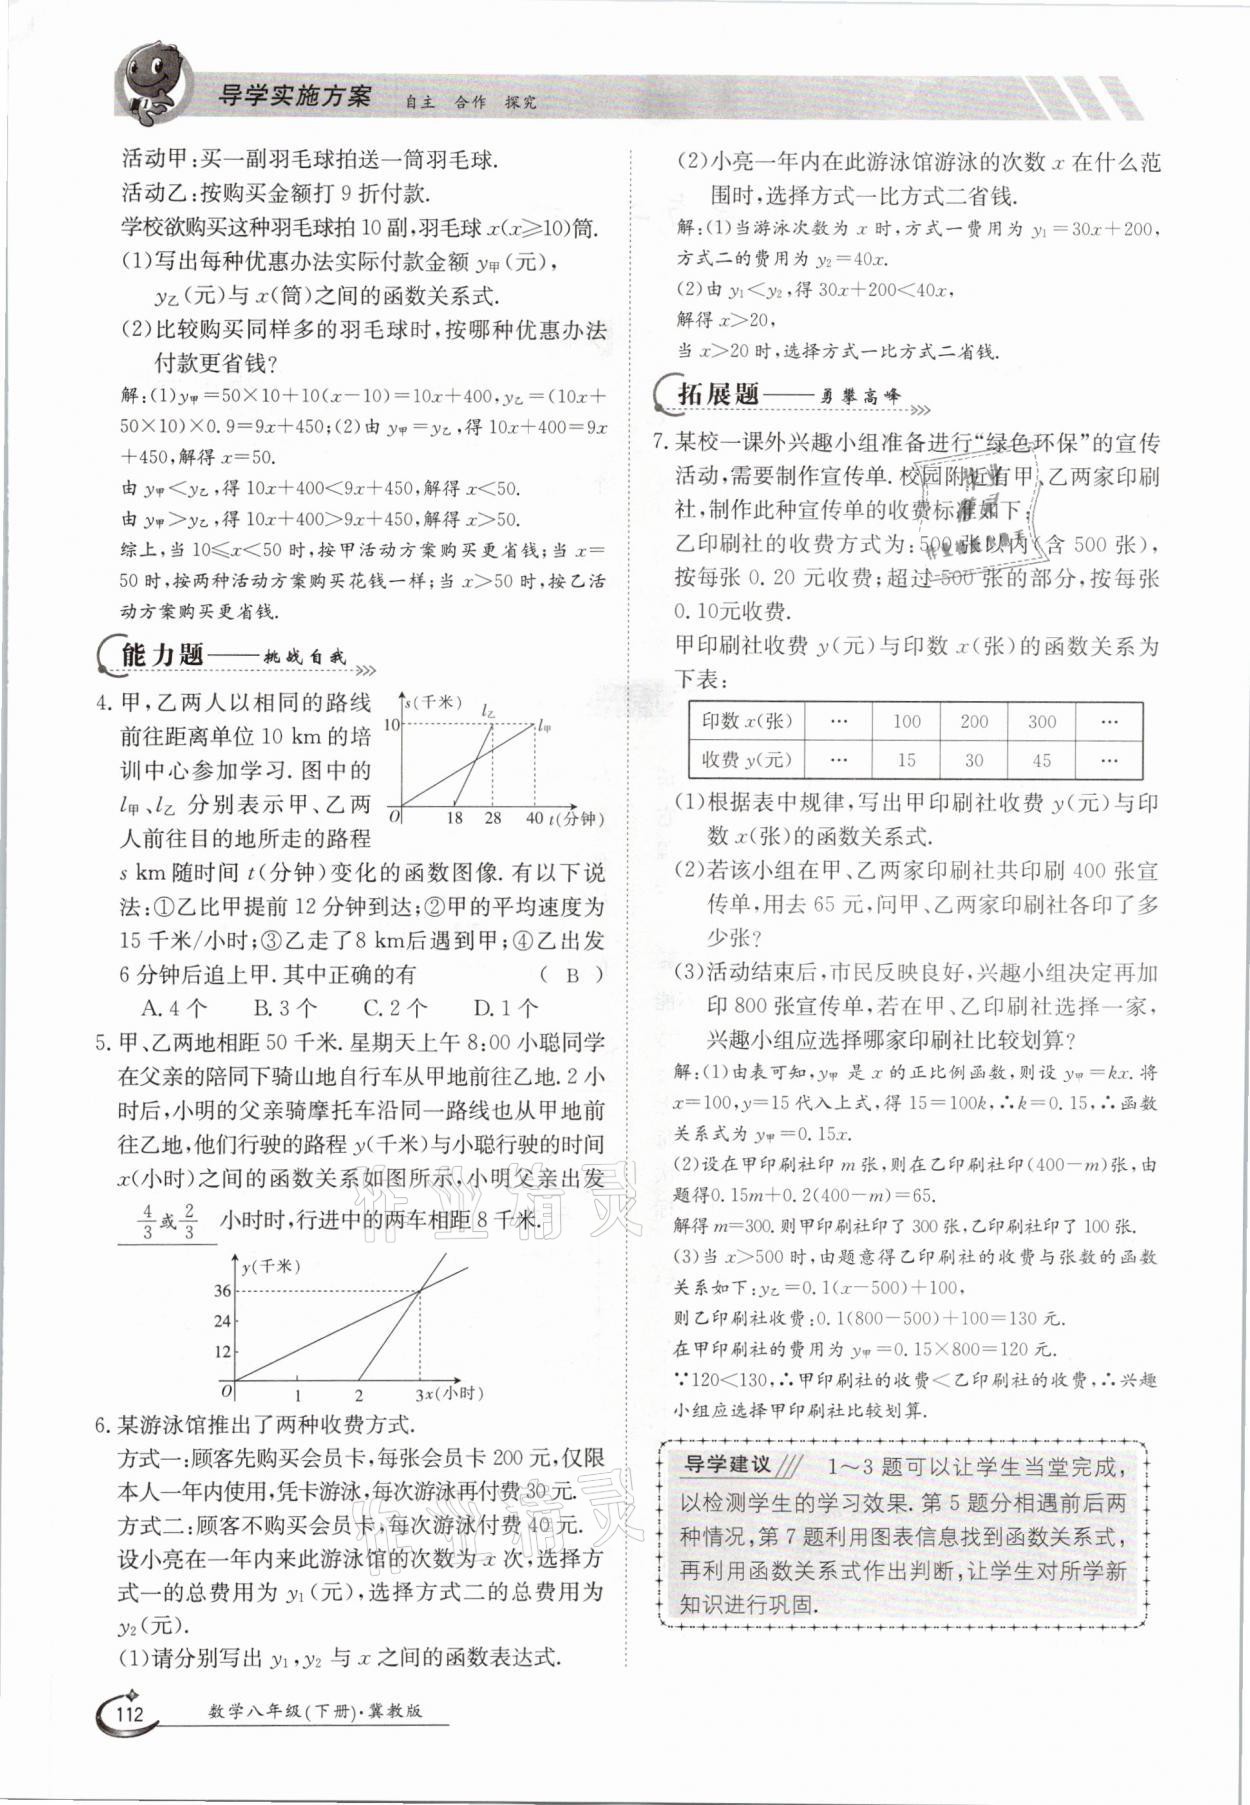 导学实施方案 自主 合作 探究
活动甲:买一副羽毛球拍送一筒羽毛球.
活动乙:按购买金额打 9 折付款.
学校欲购买这种羽毛球拍 10 副,羽毛球 x(x≥10)筒.
(1)写出每种优惠办法实际付款金额 y甲(元),
y乙(元)与 x(筒)之间的函数关系式.
(2)比较购买同样多的羽毛球时,按哪种优惠办法
付款更省钱?
解:(1)y甲=50×10+10(x-10)=10x+400,y乙=(10x+
50×10)×0.9=9x+450;(2)由 y甲=y乙,得 10x+400=9x
+450,解得 x=50.
由 y甲<y乙,得 10x+400<9x+450,解得 x<50.
由 y甲>y乙,得 10x+400>9x+450,解得 x>50.
综上,当 10≤x<50 时,按甲活动方案购买更省钱;当 x=
50 时,按两种活动方案购买花钱一样;当 x>50 时,按乙活
动方案购买更省钱.
能力题——挑战自我
4. 甲,乙两人以相同的路线
前往距离单位 10 km 的培
训中心参加学习. 图中的
l甲、l乙 分别表示甲、乙两
人前往目的地所走的路程
s(千米)
l乙
l甲
10
O 18 28 40 t(分钟)
s km 随时间 t(分钟)变化的函数图像. 有以下说
法:①乙比甲提前 12 分钟到达;②甲的平均速度为
15 千米/小时;③乙走了8 km后遇到甲;④乙出发
6 分钟后追上甲. 其中正确的有 ( B )
A. 4 个 B. 3 个 C. 2 个 D. 1 个
5. 甲、乙两地相距 50 千米. 星期天上午 8:00 小聪同学
在父亲的陪同下骑山地自行车从甲地前往乙地. 2 小
时后,小明的父亲骑摩托车沿同一路线也从甲地前
往乙地,他们行驶的路程 y(千米)与小聪行驶的时间
x(小时)之间的函数关系如图所示,小明父亲出发
4/3 或 2/3 小时时,行进中的两车相距 8 千米.
y(千米)
36
24
12
O 1 2 3 x(小时)
6. 某游泳馆推出了两种收费方式.
方式一:顾客先购买会员卡,每张会员卡 200 元,仅限
本人一年内使用,凭卡游泳,每次游泳再付费 30 元.
方式二:顾客不购买会员卡,每次游泳付费 40 元.
设小亮在一年内来此游泳馆的次数为 x 次,选择方
式一的总费用为 y1(元),选择方式二的总费用为
y2(元).
(1)请分别写出 y1,y2 与 x 之间的函数表达式.
112 数学八年级(下册)·冀教版
(2)小亮一年内在此游泳馆游泳的次数 x 在什么范
围时,选择方式一比方式二省钱.
解:(1)当游泳次数为 x 时,方式一费用为 y1=30x+200,
方式二的费用为 y2=40x.
(2)由 y1<y2,得 30x+200<40x,
解得 x>20,
当 x>20 时,选择方式一比方式二省钱.
拓展题——勇攀高峰
7. 某校一课外兴趣小组准备进行“绿色环保”的宣传
活动,需要制作宣传单. 校园附近有甲、乙两家印刷
社,制作此种宣传单的收费标准如下:
乙印刷社的收费方式为:500 张以内(含 500 张),
按每张 0.20 元收费;超过 500 张的部分,按每张
0.10元收费.
甲印刷社收费 y(元)与印数 x(张)的函数关系为
下表:
印数 x(张) … 100 200 300 …
收费 y(元) … 15 30 45 …
(1)根据表中规律,写出甲印刷社收费 y(元)与印
数 x(张)的函数关系式.
(2)若该小组在甲、乙两家印刷社共印刷 400 张宣
传单,用去 65 元,问甲、乙两家印刷社各印了多
少张?
(3)活动结束后,市民反映良好,兴趣小组决定再加
印 800 张宣传单,若在甲、乙印刷社选择一家,
兴趣小组应选择哪家印刷社比较划算?
解:(1)由表可知,y甲 是 x 的正比例函数,则设 y甲=kx. 将
x=100,y=15 代入上式,得 15=100k,∴k=0.15,∴函数
关系式为 y甲=0.15x.
(2)设在甲印刷社印 m 张,则在乙印刷社印(400-m)张,由
题得0.15m+0.2(400-m)=65.
解得 m=300. 则甲印刷社印了 300 张,乙印刷社印了 100 张.
(3)当 x>500 时,由题意得乙印刷社的收费与张数的函数
关系如下:y乙=0.1(x-500)+100,
则乙印刷社收费:0.1(800-500)+100=130 元.
在甲印刷社的费用为 y甲=0.15×800=120 元.
∵120<130,∴甲印刷社的收费<乙印刷社的收费,∴兴趣
小组应选择甲印刷社比较划算.
导学建议 1～3 题可以让学生当堂完成,
以检测学生的学习效果. 第 5 题分相遇前后两
种情况,第 7 题利用图表信息找到函数关系式,
再利用函数关系式作出判断,让学生对所学新
知识进行巩固.
作业精灵
作业精灵